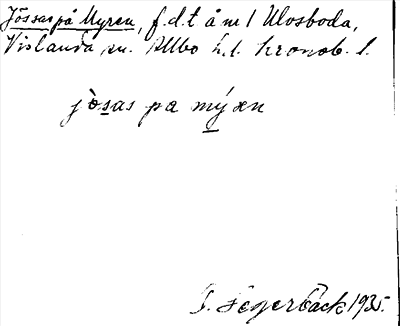 Jössas på Myren, f.d.t å m 1 Ulvsboda,
Vislanda sn. Allbo h.d. Kronob. l.
jòsas pa mýren
G. Segerbäck 1935.